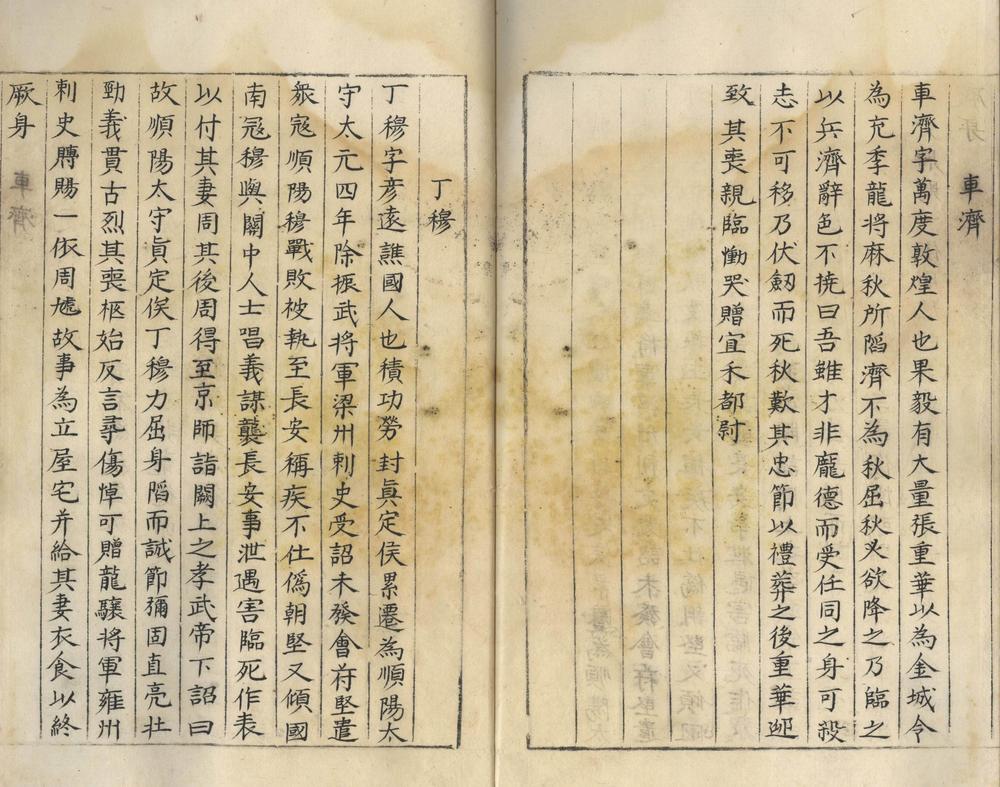 車濟
車濟字萬度敦煌人也果毅有大量張重華以為金城令
為充季龍將麻秋所䧟濟不為秋屈秋必欲降之乃臨之
以兵濟辭色不撓曰吾雖才非龐德而受任同之身可殺
志不可移乃伏劒而死秋歎其忠節以禮葬之後重華迎
致其喪親臨慟哭贈宜禾都尉
丁穆
丁穆字彦遠譙國人也積功勞封眞定侯累遷為順陽太
守太元四年除振武將軍梁州刺史受詔未發會苻堅遣
衆寇順陽穆戰敗被執至長安稱疾不仕僞朝堅又傾國
南寇穆與關中人士唱義謀襲長安事泄遇害臨死作表
以付其妻周其後周得至京師詣闕上之孝武帝下詔曰
故順陽太守眞定侯丁穆力屈身䧟而誠節彌固直亮壯
勁義貫古烈其喪柩始反言尋傷悼可贈龍驤將軍雍州
刺史賻賜一依周虓故事為立屋宅并給其妻衣食以終
厥身